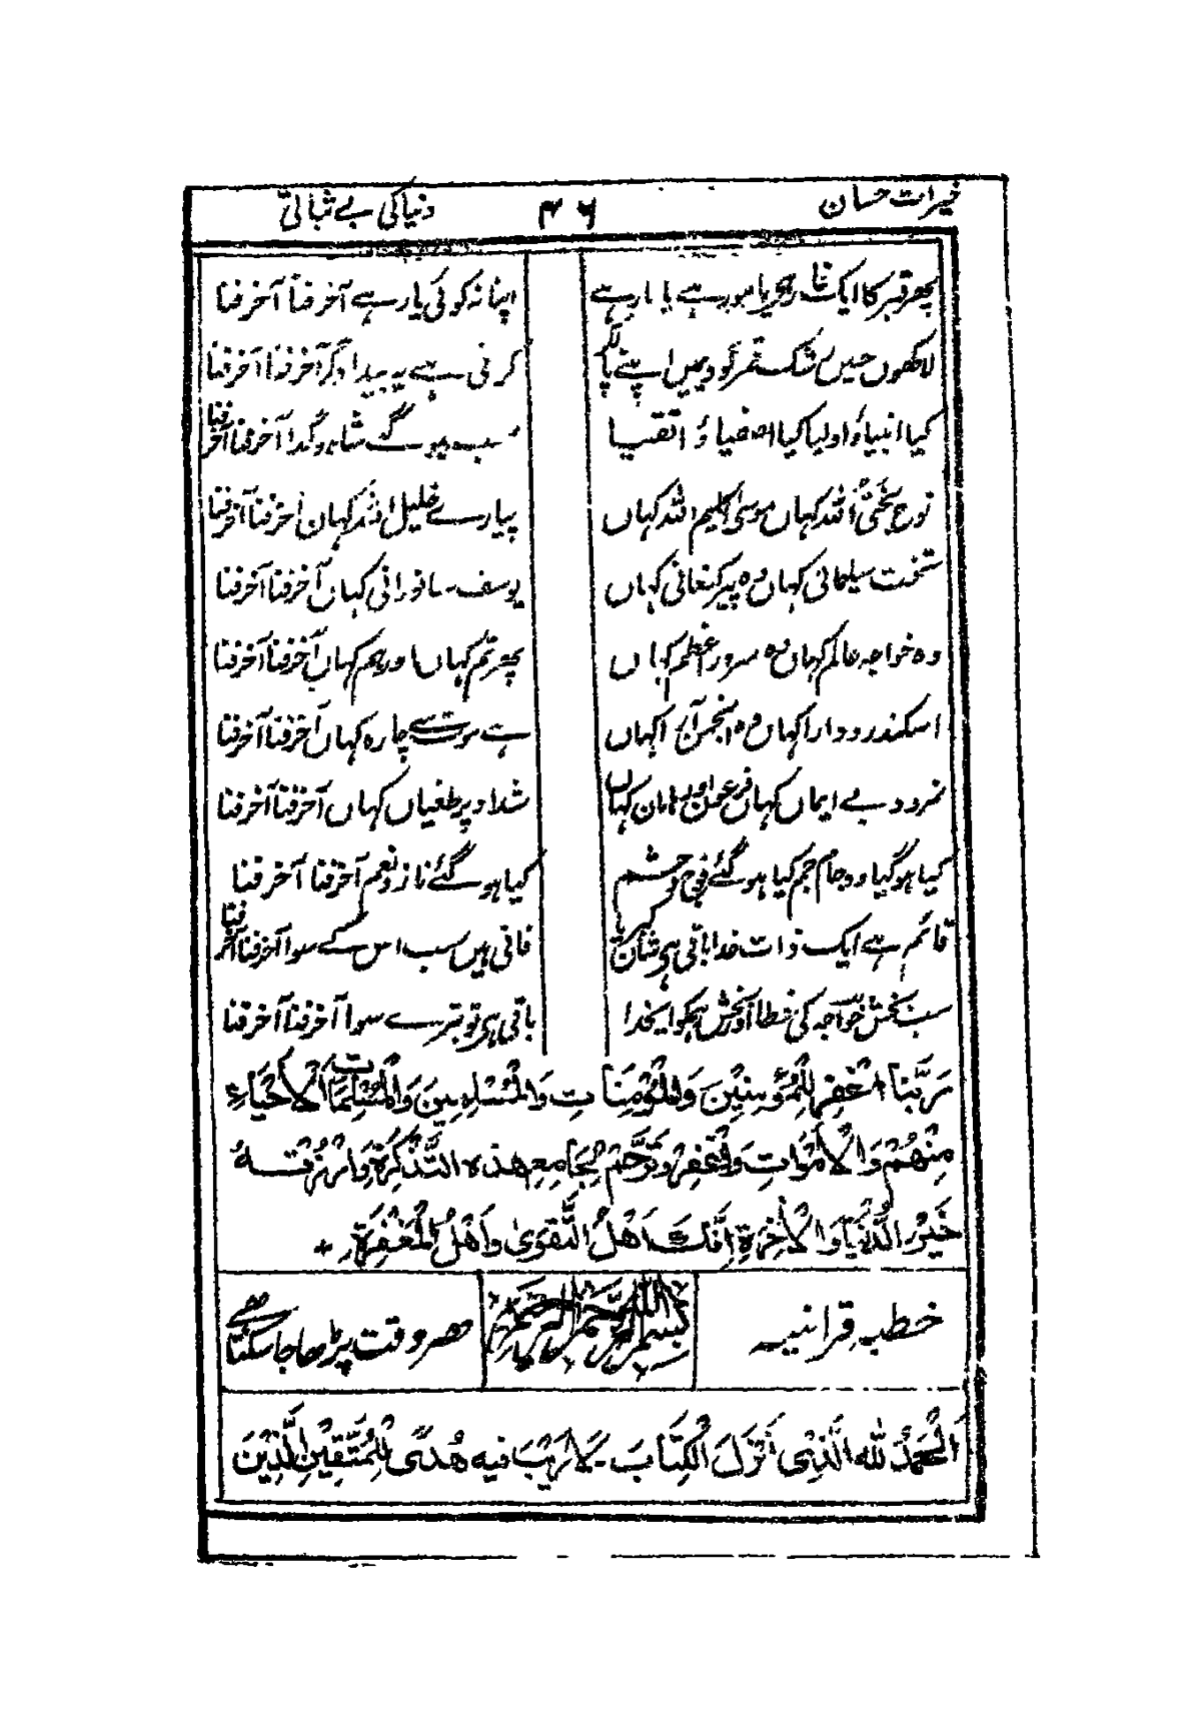 خیرات حسان ۴۶ دنیا کی بے ثباتی
پھر قبر کا ایک غار ہے یا مور ہے یا مار ہے اپنا نہ کوئی یار ہے آخر فنا آخر فنا
لاکھوں حسیں رشک قمر گود میں اپنے پالکر کرنی ہے یہ بیداد گر آخر فنا آخر فنا
کیا انبیا و اولیا کیا اصفیا و اتقیا سب ہونگے شاہ و گدا آخر فنا آخر فنا
نوح نجی اللہ کہاں موسیٰ کلیم اللہ کہاں پیارے خلیل اللہ کہاں آخر فنا آخر فنا
تخت سلیمانی کہاں وہ پیر کنعانی کہاں یوسف سا نورانی کہاں آخر فنا آخر فنا
وہ خواجہ عالم کہاں وہ سرور اعظم کہاں پھر تم کہاں اور ہم کہاں آخر فنا آخر فنا
اسکندر و دارا کہاں وہ انجمن آرا کہاں ہے موت سے چارہ کہاں آخر فنا آخر فنا
نمرود بے ایماں کہاں فرعون اور ہامان کہاں شداد پر طغیاں کہاں آخر فنا آخر فنا
کیا ہو گیا وہ جام جم کیا ہو گئے فوج و حشم کیا ہو گئے ناز و نعم آخر فنا آخر فنا
قائم ہے ایک ذات خدا باقی ہی شان کبریا فانی ہیں سب اس کے سوا آخر فنا آخر فنا
سب بخش خواجہ کی خطا اور بخش ہمکو ایخدا باقی ہی تو تیرے سوا آخر فنا آخر فنا
رَبَّنَا اغْفِرْ لِلْمُؤْمِنِيْنَ وَالْمُؤْمِنَاتِ وَالْمُسْلِمِيْنَ وَالْمُسْلِمَاتِ اَلْاَحْيَاءِ
مِنْهُمْ وَالْاَمْوَاتِ وَاغْفِرْ وَتَرَحَّمْ لِجَامِعِ هٰذِهِ التَّذْكِرَةِ وَارْزُقْهُ
خَيْرَ الدُّنْيَا وَالْاٰخِرَةِ اِنَّكَ اَهْلُ التَّقْوٰى وَاَهْلُ الْمَغْفِرَةِ +
خطبہ قرانیہ بسم اللہ الرحمن الرحیم ہر وقت پڑھا جا سکتا ہے
اَلْحَمْدُ لِلّٰهِ الَّذِيْ اَنْزَلَ الْكِتَابَ۔ لَا رَيْبَ فِيْهِ هُدًى لِّلْمُتَّقِيْنَ الَّذِيْنَ